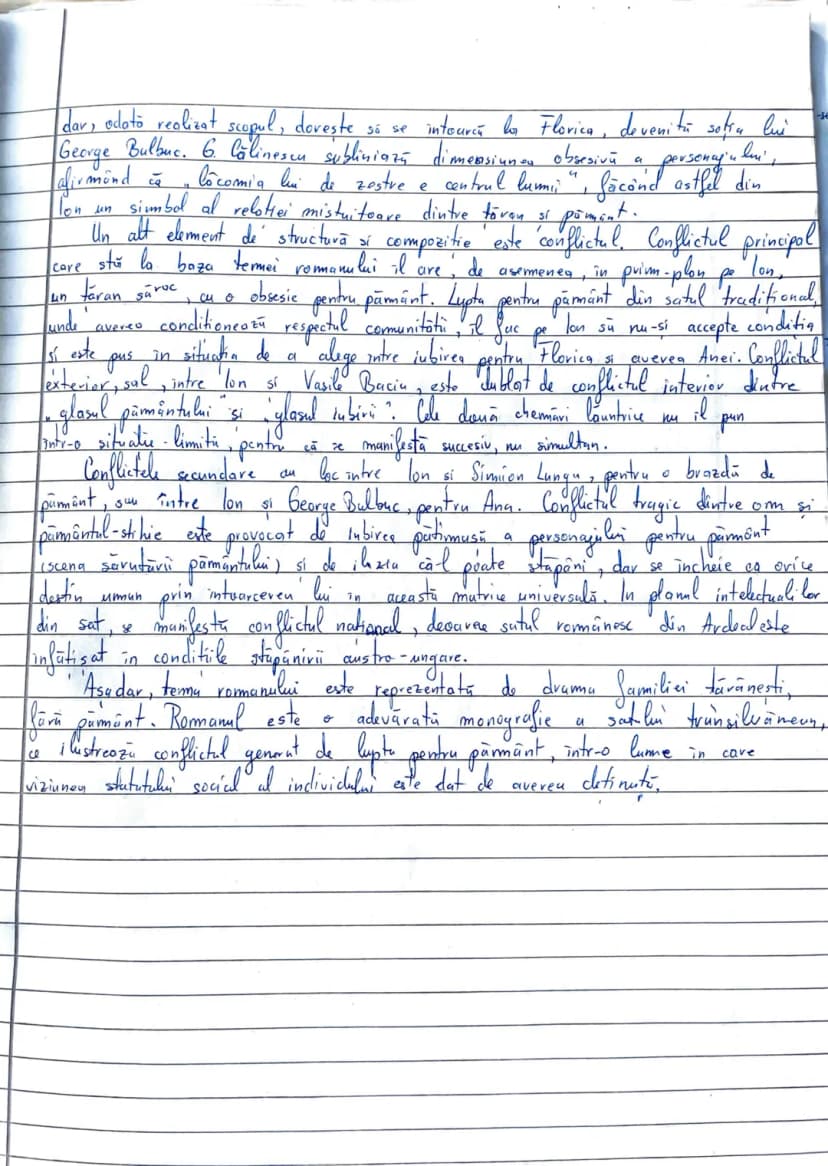 dar, odată realizat scopul, dorește să se întoarcă la Florica, devenită soția lui
George Bulbuc. G. Călinescu subliniază dimensiunea obsesivă a personajului,
afirmând că „lăcomia lui de zestre e centrul lumii", făcând astfel din
Ion un simbol al relației mistuitoare dintre țăran și pământ.
Un alt element de structură și compoziție este conflictul. Conflictul principal
care stă la baza temei romanului îl are, de asemenea, în prim-plan pe Ion,
un țăran sărac, cu o obsesie pentru pământ. Lupta pentru pământ din satul tradițional,
unde averea condiționează respectul comunității, îl fac pe Ion să nu-și accepte condiția
și este pus în situația de a alege între iubirea pentru Florica și averea Anei. Conflictul
exterior, sal, între Ion și Vasile Baciu, este dublat de conflictul interior dintre
„glasul pământului" și „glasul iubirii". Cele două chemări lăuntrice nu îl pun
într-o situație-limită, pentru că se manifestă succesiv, nu simultan.
Conflictele secundare au loc între Ion și Simion Lungu, pentru o brazdă de
pământ, sau între Ion și George Bulbuc, pentru Ana. Conflictul tragic dintre om și
pământul-stihie este provocat de iubirea pătimașă a personajului pentru pământ
(scena sărutării pământului) și de iluzia că-l poate stăpâni, dar se încheie ca orice
destin uman prin întoarcerea lui în această matrice universală. În planul intelectualilor
din sat, se manifestă conflictul național, deoarece satul românesc din Ardeal este
înfățișat în condițiile stăpânirii austro-ungare.
Așadar, tema romanului este reprezentată de drama familiei țărănești,
fără pământ. Romanul este o adevărată monografie a satului transilvănean,
ce ilustrează conflictul generat de lupta pentru pământ, într-o lume în care
viziunea statutului social al individului este dat de averea deținută.